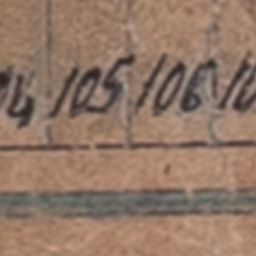 04 105 106 10